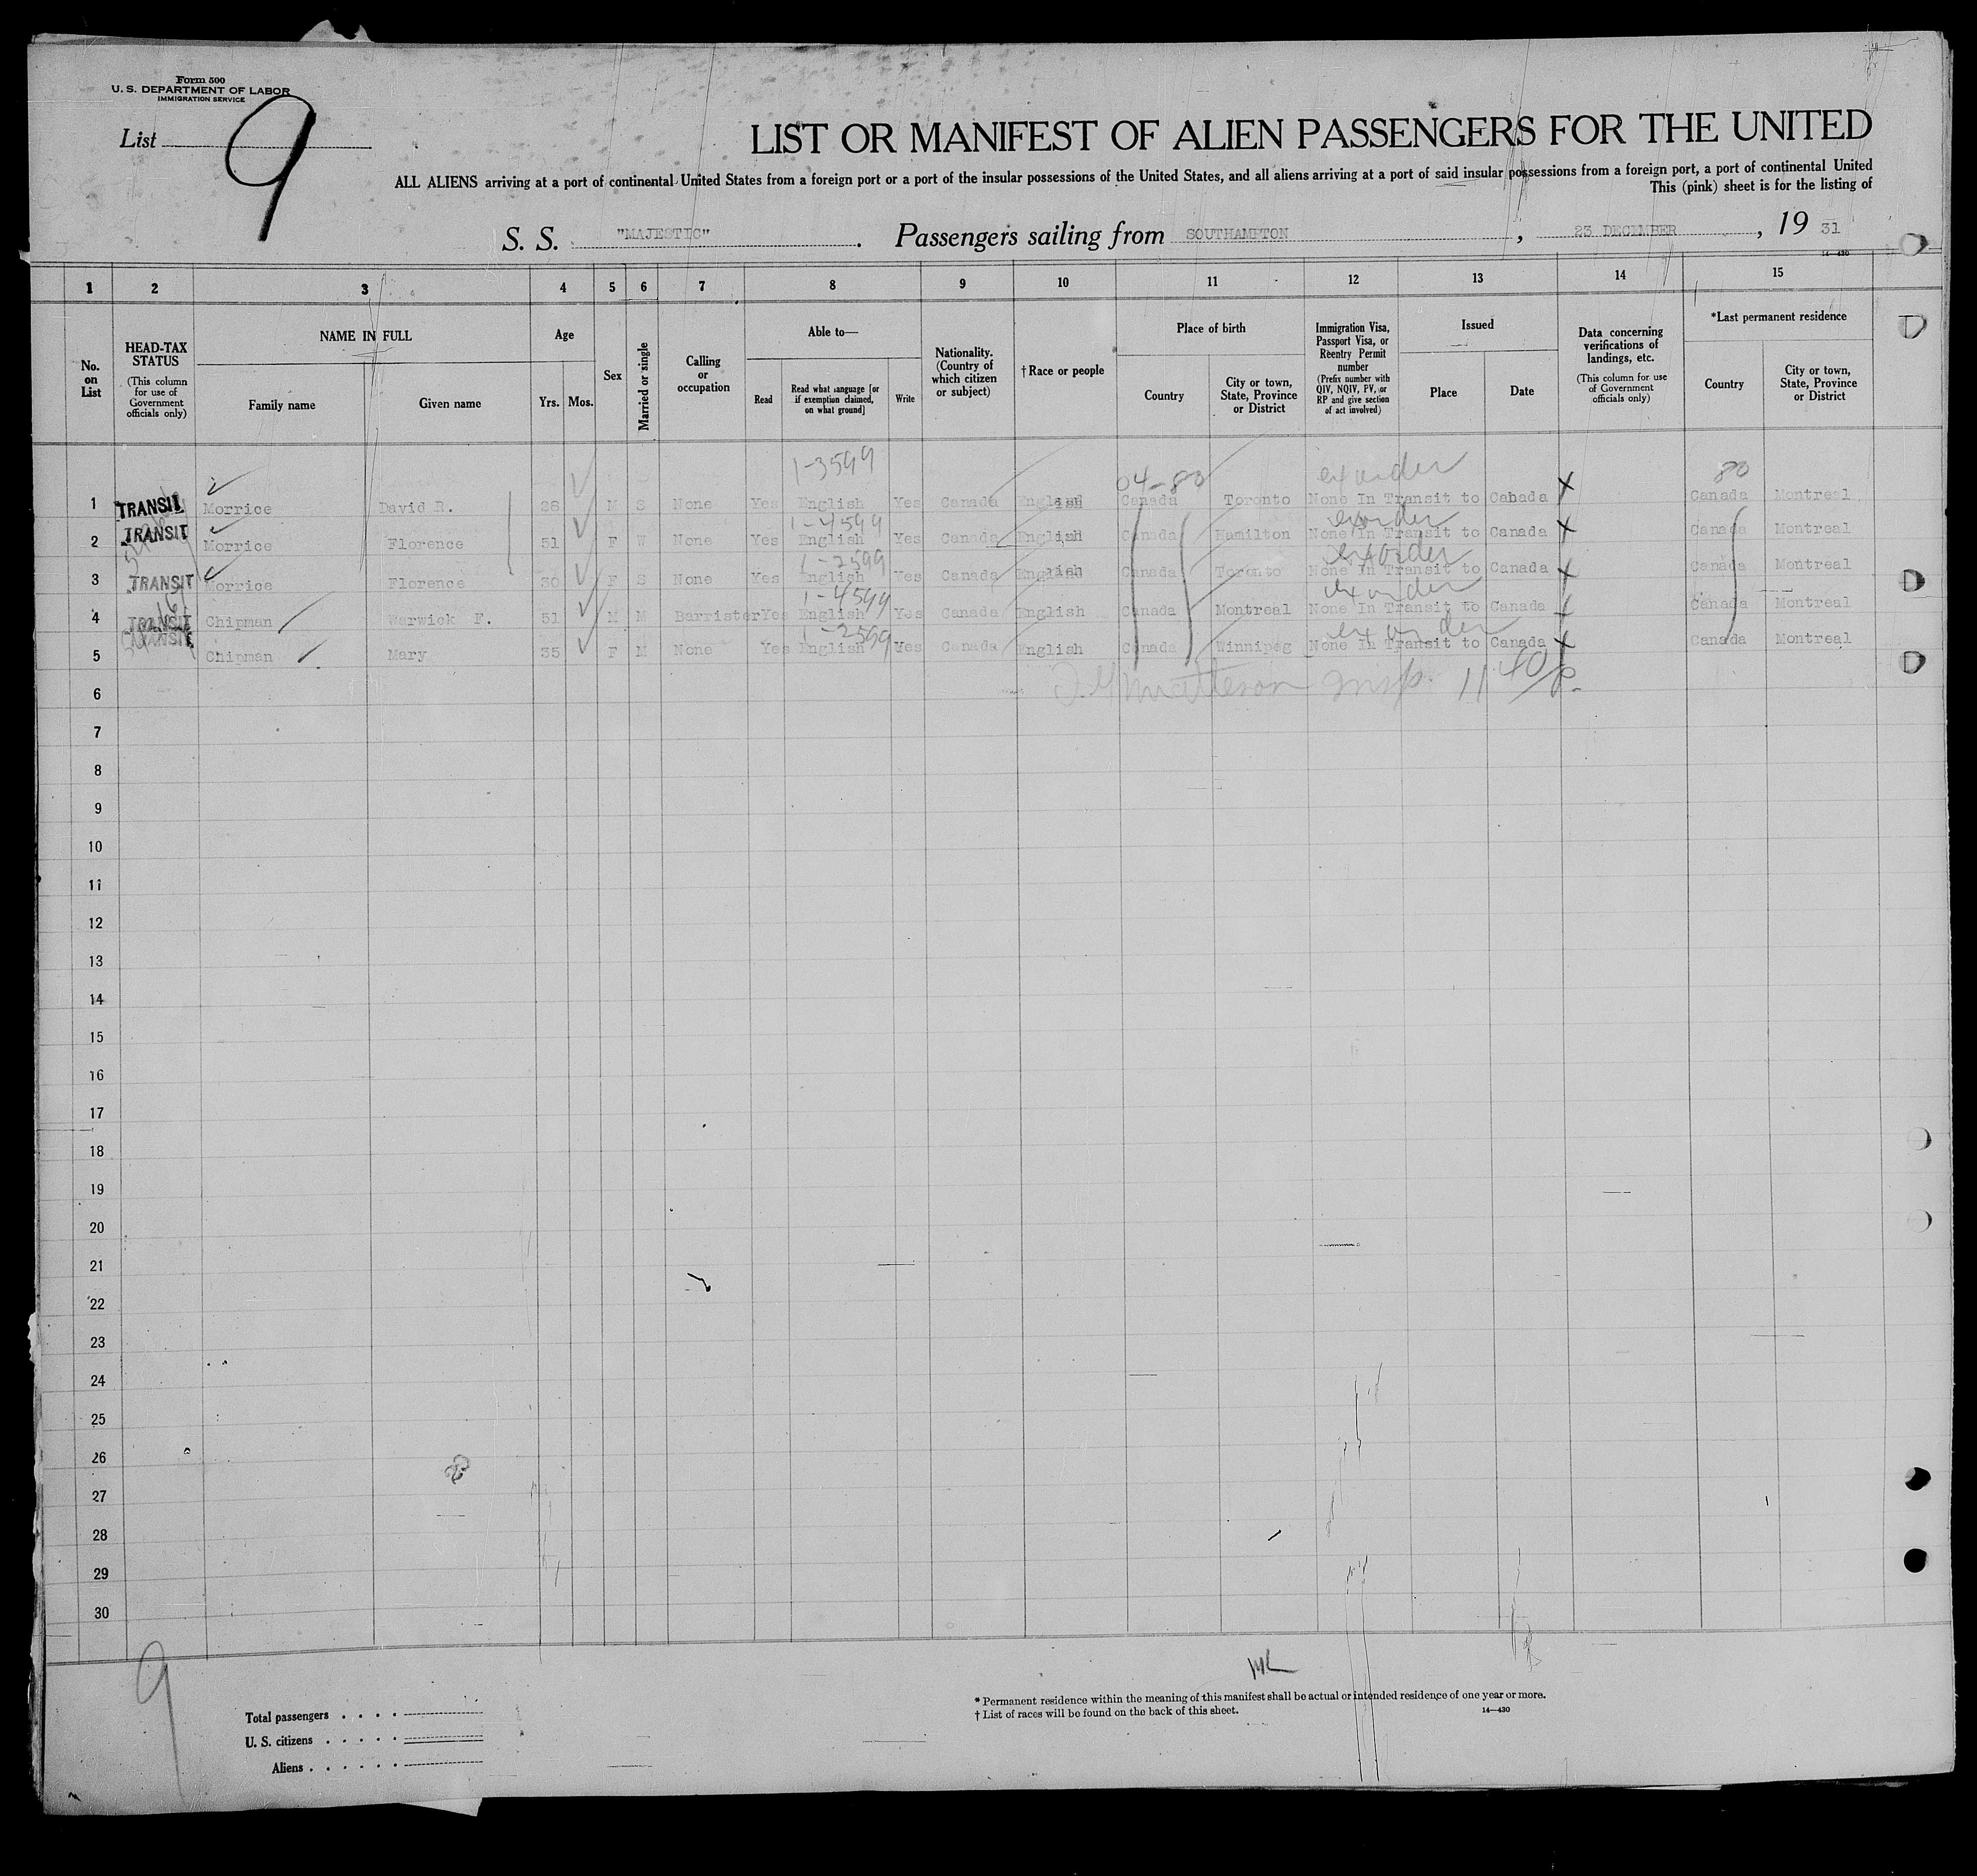 Form 500
U. S. DEPARTMENT OF LABOR
IMMIGRATION SERVICE
List 9
LIST OR MANIFEST OF ALIEN PASSENGERS FOR THE UNITED
ALL ALIENS arriving at a port of continental United States from a foreign port or a port of the insular possessions of the United States, and all aliens arriving at a port of said insular possessions from a foreign port, a port of continental United
This (pink) sheet is for the listing of
S. S. "MAJESTIC". Passengers sailing from SOUTHAMPTON, 23 DECEMBER, 19 31
14—430
1 2 3 4 5 6 7 8 9 10 11 12 13 14 15
No. on List
HEAD-TAX STATUS (This column for use of Government officials only)
NAME IN FULL
Family name Given name
Age
Yrs. Mos.
Sex
Married or single
Calling or occupation
Able to—
Read Read what language [or if exemption claimed, on what ground] Write
Nationality. (Country of which citizen or subject)
†Race or people
Place of birth
Country City or town, State, Province or District
Immigration Visa, Passport Visa, or Reentry Permit number (Prefix number with QIV, NQIV, PV, or RP and give section of act involved)
Issued
Place Date
Data concerning verifications of landings, etc. (This column for use of Government officials only)
*Last permanent residence
Country City or town, State, Province or District
1-3599 04-80 80
1 TRANSIT Morrice David R. 26 M S None Yes English Yes Canada English Canada Toronto None In Transit to Canada X Canada Montreal
1-4599
2 TRANSIT Morrice Florence 51 F W None Yes English Yes Canada English Canada Hamilton None In Transit to Canada X Canada Montreal
1-2599
3 TRANSIT Morrice Florence 30 F S None Yes English Yes Canada English Canada Toronto None In Transit to Canada X Canada Montreal
1-4599
4 TRANSIT Chipman Warwick F. 51 M M Barrister Yes English Yes Canada English Canada Montreal None In Transit to Canada X Canada Montreal
1-2599
5 TRANSIT Chipman Mary 35 F M None Yes English Yes Canada English Canada Winnipeg None In Transit to Canada X Canada Montreal
Insp. 11 40/P.
6
7
8
9
10
11
12
13
14
15
16
17
18
19
20
21
22
23
24
25
26
27
28
29
30
9
* Permanent residence within the meaning of this manifest shall be actual or intended residence of one year or more.
† List of races will be found on the back of this sheet.
14—430
Total passengers
U. S. citizens
Aliens